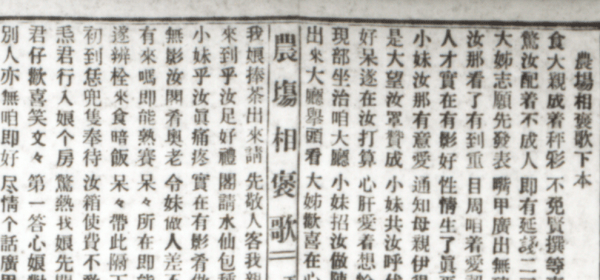 農場相褒歌下本
食大親成着秤彩 不免賢撰等
驚汝配着不成人 即有延誤二
大姊志願先發表 嘴甲廣出無
汝那看了有到重 目周咱着愛
人才實在有影好 性情生了眞
小妹汝那有意愛 通知母親伊
是大望汝罩賛成 小妹共汝呼
好呆遂在汝打算 心肝愛看想
現都坐治咱大廳 小妹招汝做陣
出來大廳舉頭看 大姊歡喜在心
農塲相褒歌
我娘捧茶出來請 先敬人客我
來到乎汝足好禮 閣請水仙包
小妹乎汝眞痛疼 實在有影肴
無影汝閣肴奧老 令妹做人差不
有來嗎即能熟賽 呆々所在即能
遂辦栓來食暗飯 呆々帶此隔
初到恁兜隻奉待 汝箱使費不
君行入娘个房 驚熱我娘先
君仔歡喜笑文々 第一答心娘
別人亦無咱即好 尽情个話廣